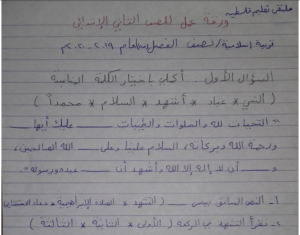 ملتقى تعليم فلسطين
ورقة عمل للصف الثاني الابتدائي
تربية إسلامية / نصف الفصل العام ٢٠١٩ - ٢٠٢٠م
السؤال الأول - أكمل باختيار الكلمة المناسبة
( النبي * عباد * أشهد * السلام * محمداً )
" التحيات لله والصلوات والطيبات ـــــ عليك أيها ـــــ
ورحمة الله وبركاته، السلام علينا وعلى ـــــ الله الصالحين،
ـــــ أن لا إله إلا الله وأشهد أن ـــــ عبده ورسوله "
١- النص السابق يسمى ـــــ ( التشهد * الصلاة الإبراهيمية * دعاء )
٢- نقرأ التشهد في الركعة ( الأولى * الثانية * الثالثة )